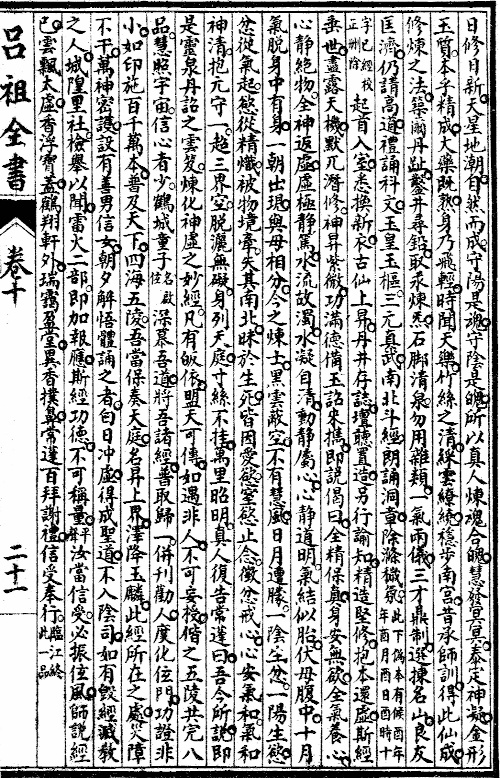 日修日新天星地朝自然而成守陽是魂守陰是魄所以真人煉魂合魄慧發冥冥泰定神凝金形
玉質本子精成大藥既熟身乃飛輕時聞天樂竹絲之清綵雲繞繞穩步南宮昔承師訓得此仙成
修煉之法築爾丹址鑿井尋鉛取汞煉炁石脚清泉勿用雜類一氣兩儀三才鼎制選揀名山良友
匡濟仍請高道禮誦科文玉皇玉樞三元真武南北斗經朗誦洞章除滌穢氛此下偽本有候酉年酉月酉日酉時十
字已經校正刪除起首入室悉換新衣古仙上昇丹井存誌壇聽置造另行諭知精造堅修抱本還虛斯經
垂世盡露天機默兀潛修神昇紫微功滿德備玉詔來擕即說偈曰全精保真身安無欲全氣養心
心靜絕物全神返虛虛極靜篤水流故濁水凝自清動靜屬心心靜道明氣結似胎伏母腹中十月
氣脫身中有身一朝出現與母相分今之煉士黑雲蔽空不有慧風日月遭朦一陰生忿一陽生慾
忿從氣起慾從精熾被物境牽失其南北昧於生死皆因愛慾窒慾止念懲忿戒心心安氣和氣和
神清抱元守一超三界空脫灑無礙身列天庭寸絲不挂萬里昭明真人復告常運曰吾今所說即
是靈泉丹詔之雲笈煉化神虛之妙經凡有皈依盟天可傳如遇非人不可妄授偕之五陵共完八
品慧照宇宙信心者少鶴城童子名啟佳深慕吾道將吾諸經善取歸一併刊勸人廣化位門功證非
小如印施百千萬本普及天下四海五陵吾當保奏天庭名昇上界澤降玉麟此經所在之處災障
不干萬神密護設有善男信女朝夕解悟體誦之者白日冲虛得成聖道不入陰司如有毀經滅教
之人城隍里社檢舉以聞雷火二部即加報應斯經功德不可稱量汝當信受必振位風師說經
已雲飄太虛香浮寶蓋鶴翔軒外瑞靄盈堂異香撲鼻常運百拜謝禮信受奉行臨江終此一品
呂祖全書
卷十
二十一